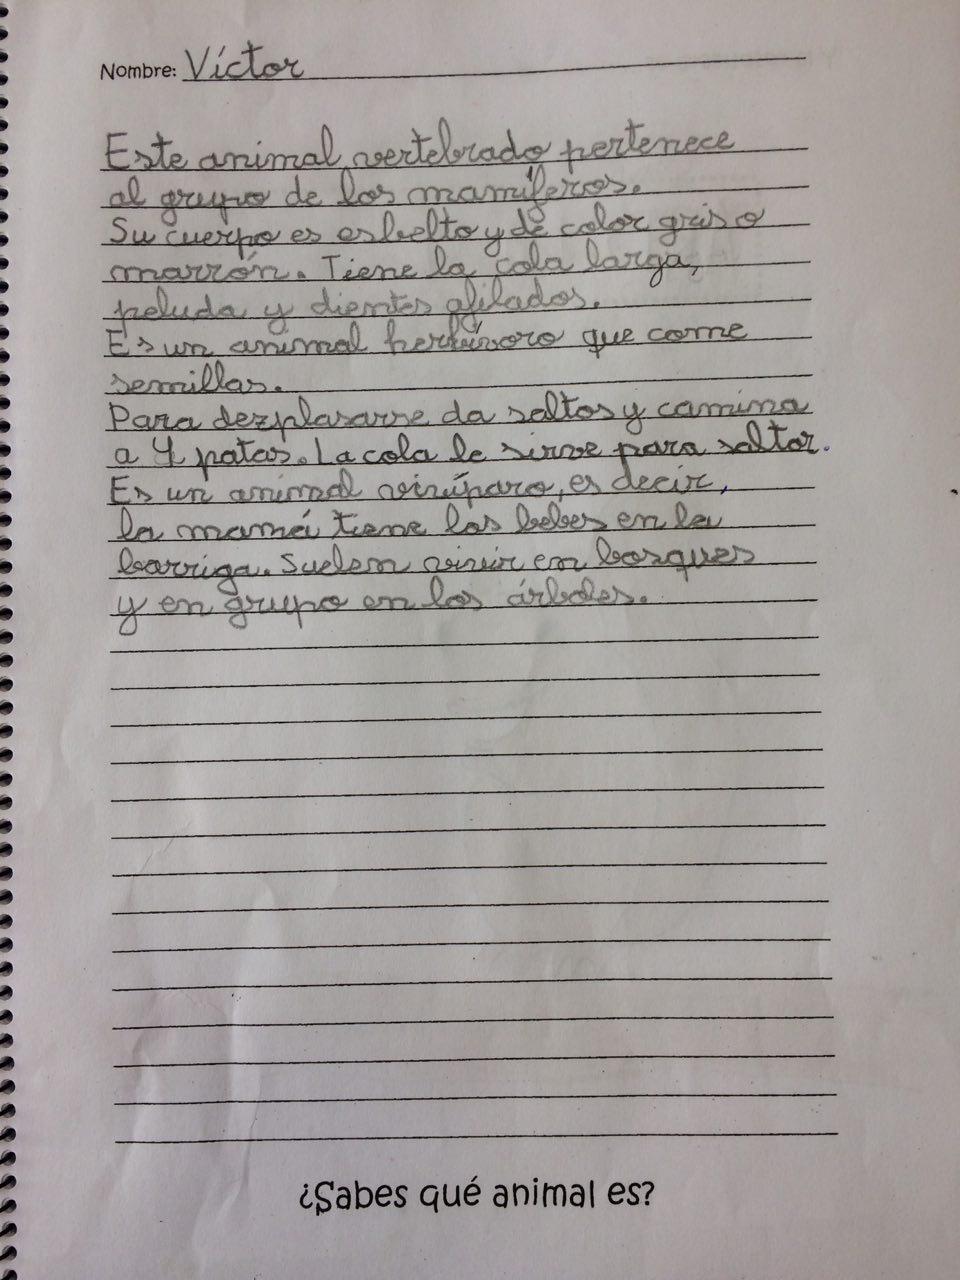 Nombre: Víctor
Este animal vertebrado pertenece
al grupo de los mamíferos.
Su cuerpo es esbelto y de color gris o
marrón. Tiene la cola larga,
peluda y dientes afilados.
Es un animal herbívoro que come
semillas.
Para dezplasarse da saltos y camina
a 4 patas. La cola le sirve para saltar.
Es un animal vivíparo, es decir,
la mamá tiene los bebes en la
barriga. Suelen vivir en bosques
y en grupo en los árboles.
¿Sabes qué animal es?